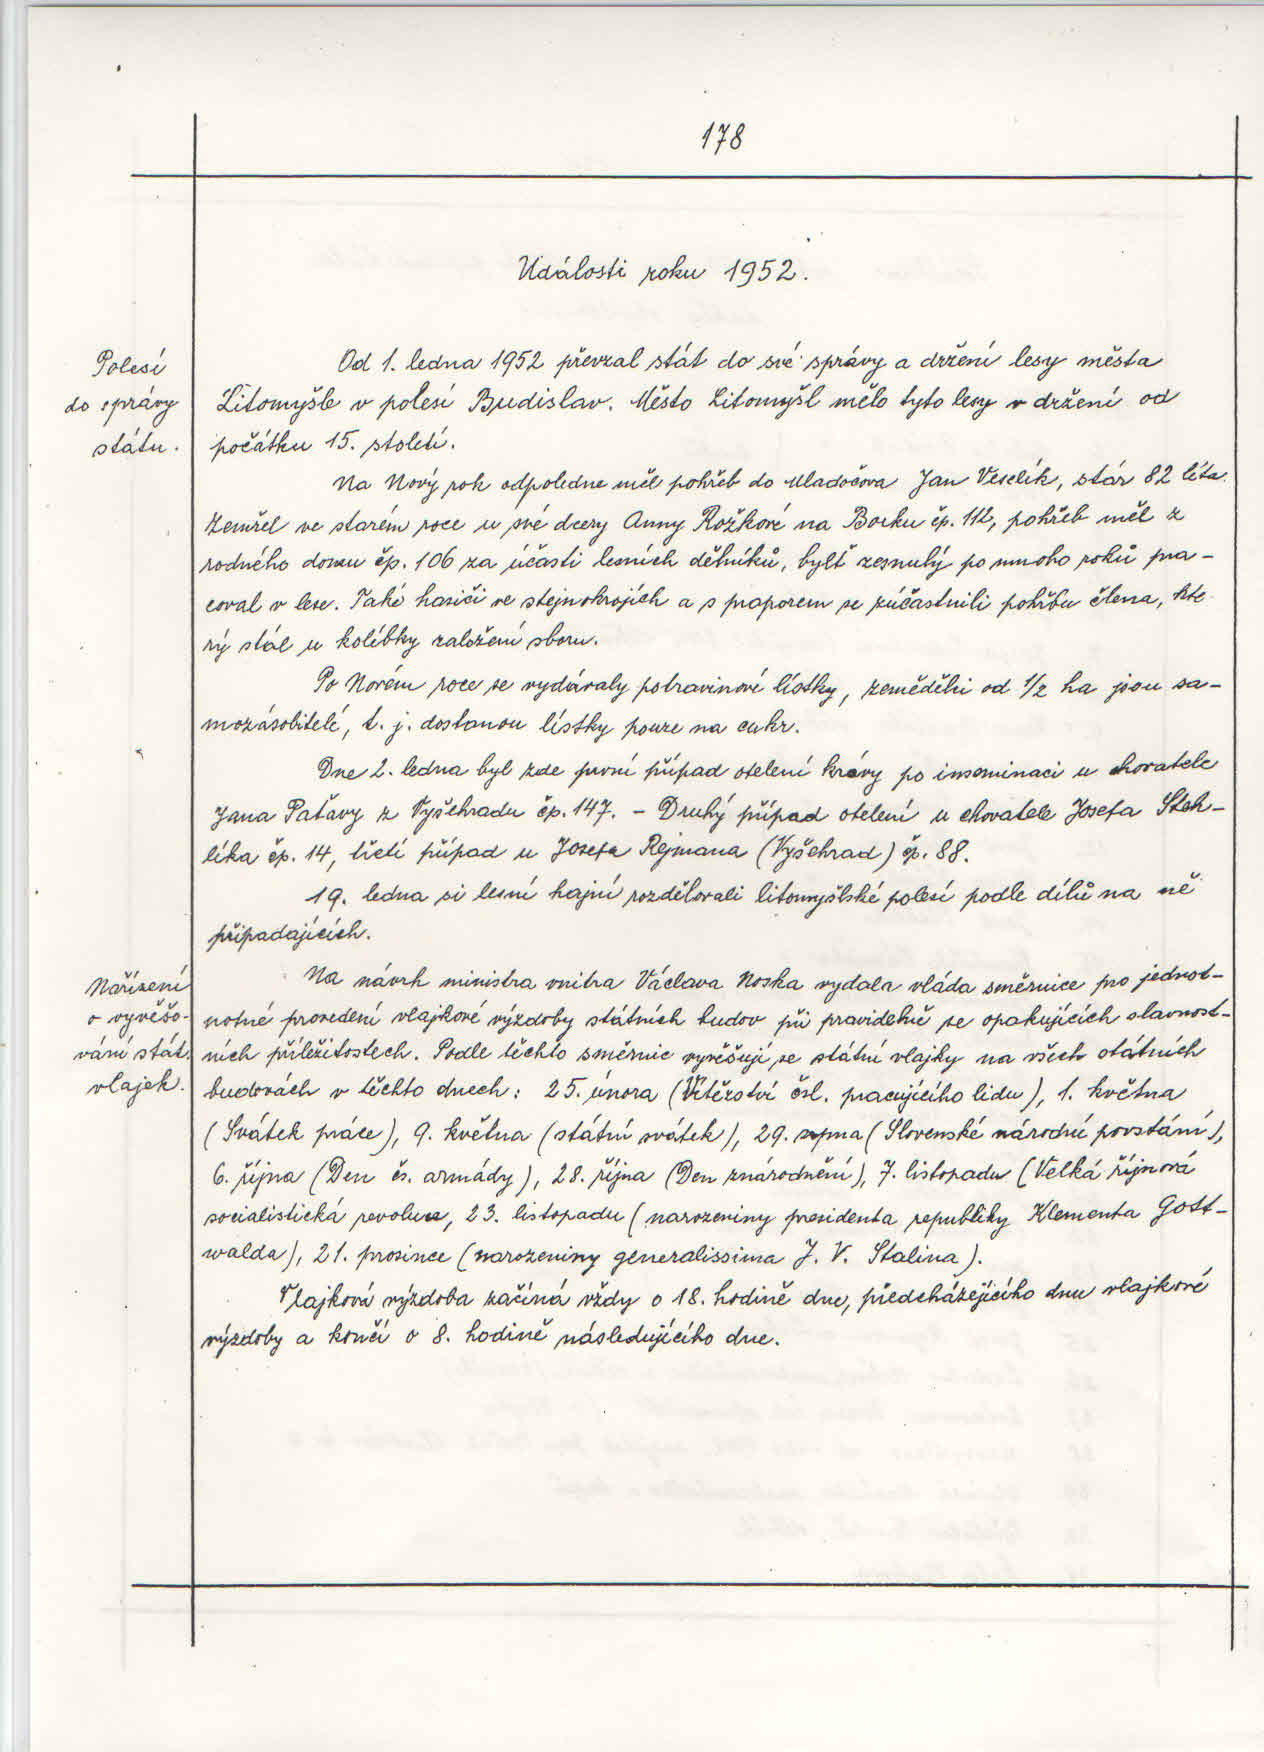 178
Události roku 1952.
Polesí
do správy
státu.
Od 1. ledna 1952 převzal stát do své správy a držení lesy města
Litomyšle v polesí Budislav. Město Litomyšl mělo tyto lesy v držení od
počátku 15. století.
Na Nový rok odpoledne měl pohřeb do Mladočova Jan Veselík, stár 82 léta.
Zemřel ve starém roce u své dcery Anny Rožkové na Borku čp. 112, pohřeb měl z
rodného domu čp. 106 za účasti lesních dělníků, bylť zesnulý po mnoho roků pra-
coval v lese. Také hasiči ve stejnokrojích a s praporem se zúčastnili pohřbu člena, kte-
rý stál u kolíbky založení sboru.
Po Novém roce se vydávaly potravinové lístky, zemědělci od 1/2 ha jsou sa-
mozásobitelé, t. j. dostanou lístky pouze na cukr.
Dne 2. ledna byl zde první případ otelení krávy po inseminaci u chovatele
Jana Paťavy z Vyšehradu čp. 147. - Druhý případ otelení u chovatele Josefa Steh-
líka čp. 14, třetí případ u Josefa Rejmana (Vyšehrad) čp. 88.
19. ledna si lesní hajní rozdělovali litomyšlské polesí podle dílů na ně
připadajících.
Nařízení
o vyvěšo-
vání stát.
vlajek.
Na návrh ministra vnitra Václava Noska vydala vláda směrnice pro jednot-
notné provedení vlajkové výzdoby státních budov při pravidelně se opakujících slavnost-
ních příležitostech. Podle těchto směrnic vyvěšují se státní vlajky na všech státních
budovách v těchto dnech: 25. února (Vítězství čsl. pracujícího lidu), 1. května
(Svátek práce), 9. května (státní svátek), 29. srpna (Slovenské národní povstání),
6. října (Den čs. armády), 28. října (Den znárodnění), 7. listopadu (Velká říjnová
socialistická revoluce, 23. listopadu (narozeniny presidenta republiky Klementa Gott-
walda), 21. prosince (narozeniny generalissima J. V. Stalina).
Vlajková výzdoba začíná vždy o 18. hodině dne, předcházejícího dnu vlajkové
výzdoby a končí o 8. hodině následujícího dne.